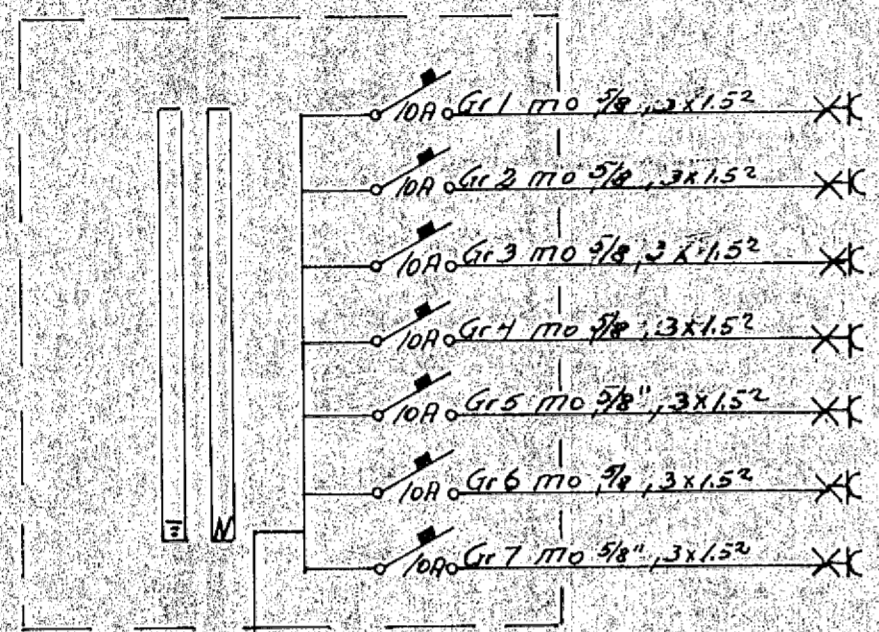 10A Gr 1 mo 5/8, 3x1.5²
10A Gr 2 mo 5/8, 3x1.5²
10A Gr 3 mo 5/8, 3x1.5²
10A Gr 4 mo 5/8, 3x1.5²
10A Gr 5 mo 5/8", 3x1.5²
10A Gr 6 mo 5/8, 3x1.5²
N
10A Gr 7 mo 5/8", 3x1.5²